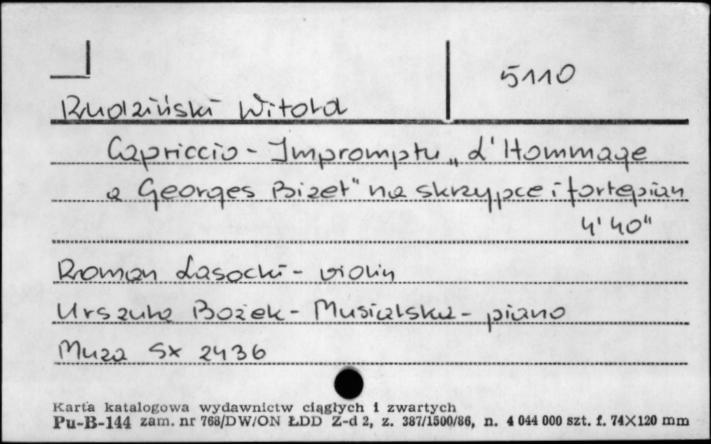 5110
Rudziński Witold
Capriccio - Impromptu „L'Hommage
a Georges Bizet" na skrzypce i fortepian
4'40"
Roman Lasocki - violin
Urszula Bożek - Musialska - piano
Muza SX 2436
Karta katalogowa wydawnictw ciągłych i zwartych
Pu-B-144 zam. nr 768/DW/ON ŁDD Z-d 2, z. 387/1500/86, n. 4 044 000 szt. f. 74X120 mm